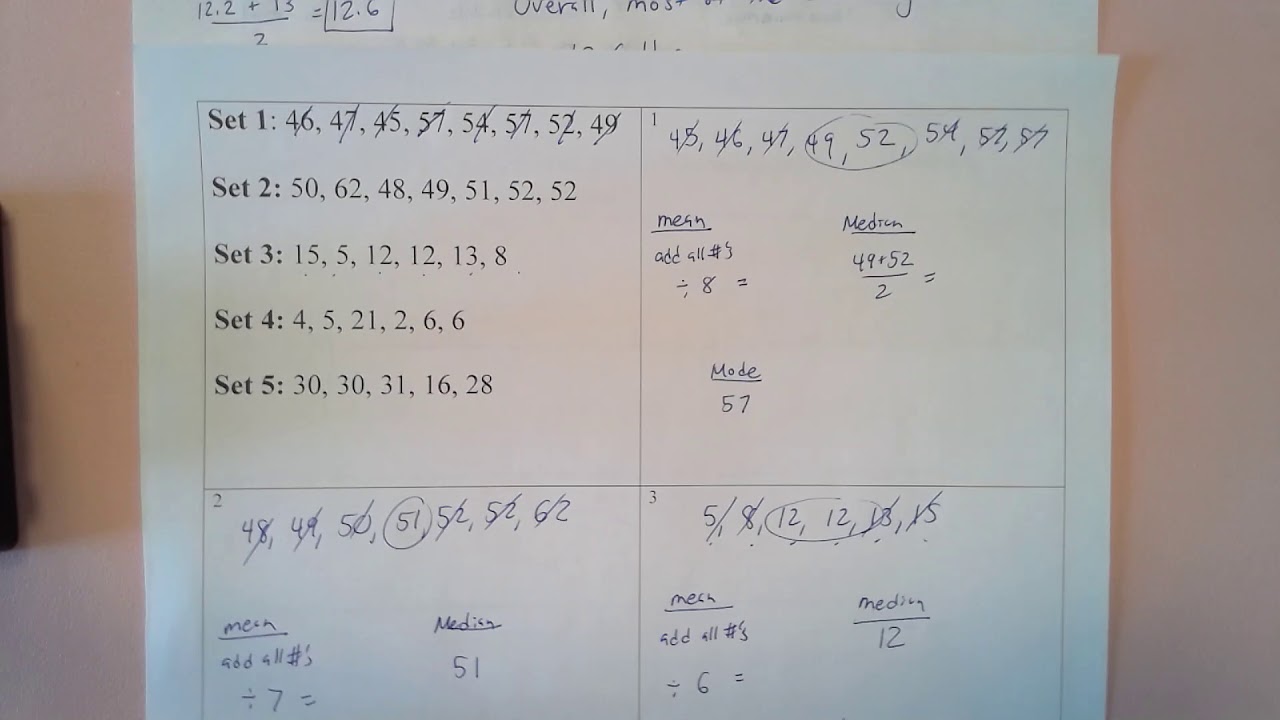 12.2 + 13
= 12.6
2
Overall, most
Set 1: 46, 47, 45, 57, 54, 57, 52, 49
Set 2: 50, 62, 48, 49, 51, 52, 52
Set 3: 15, 5, 12, 12, 13, 8
Set 4: 4, 5, 21, 2, 6, 6
Set 5: 30, 30, 31, 16, 28
1
45, 46, 47, 49, 52, 54, 57, 57
mean
add all #'s
÷ 8 =
Median
49+52
2
=
Mode
57
2
48, 49, 50, 51, 52, 52, 62
mean
add all #'s
÷ 7 =
Median
51
3
5, 8, 12, 12, 13, 15
mean
add all #'s
÷ 6 =
median
12